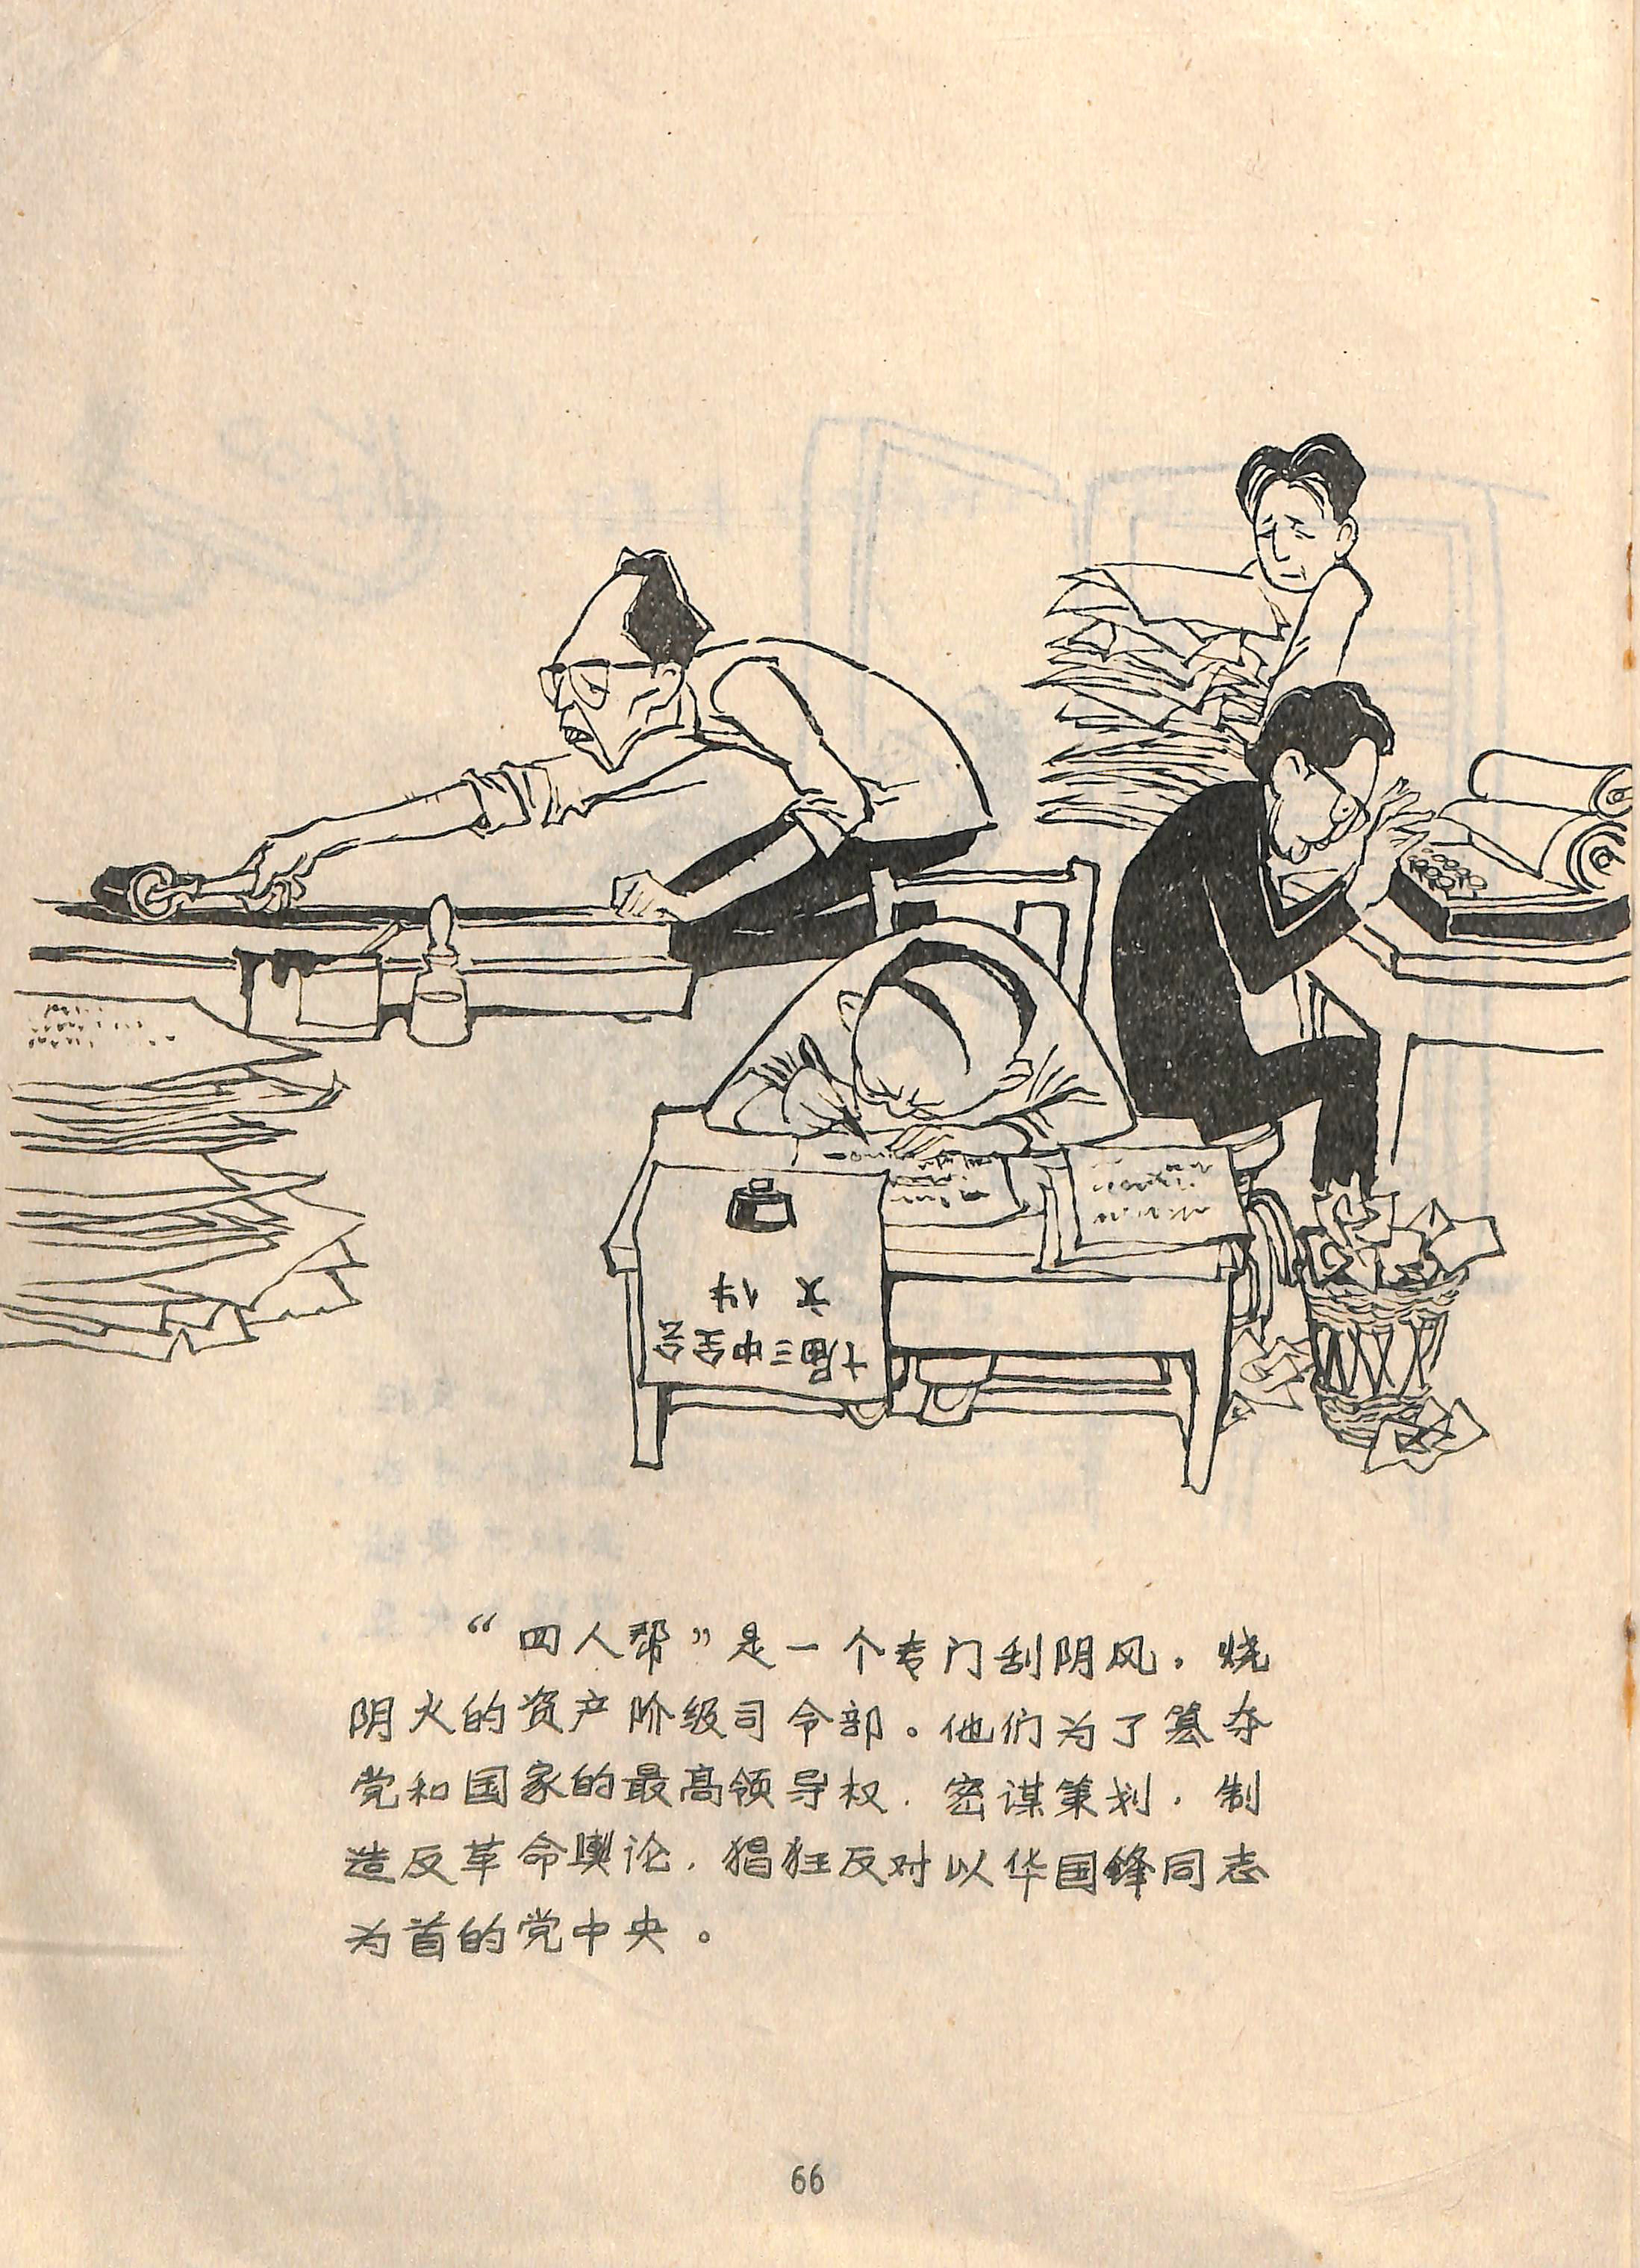 文件
十届三中全会
“四人帮”是一个专门刮阴风，烧
阴火的资产阶级司令部。他们为了篡夺
党和国家的最高领导权，密谋策划，制
造反革命舆论，猖狂反对以华国锋同志
为首的党中央。
66